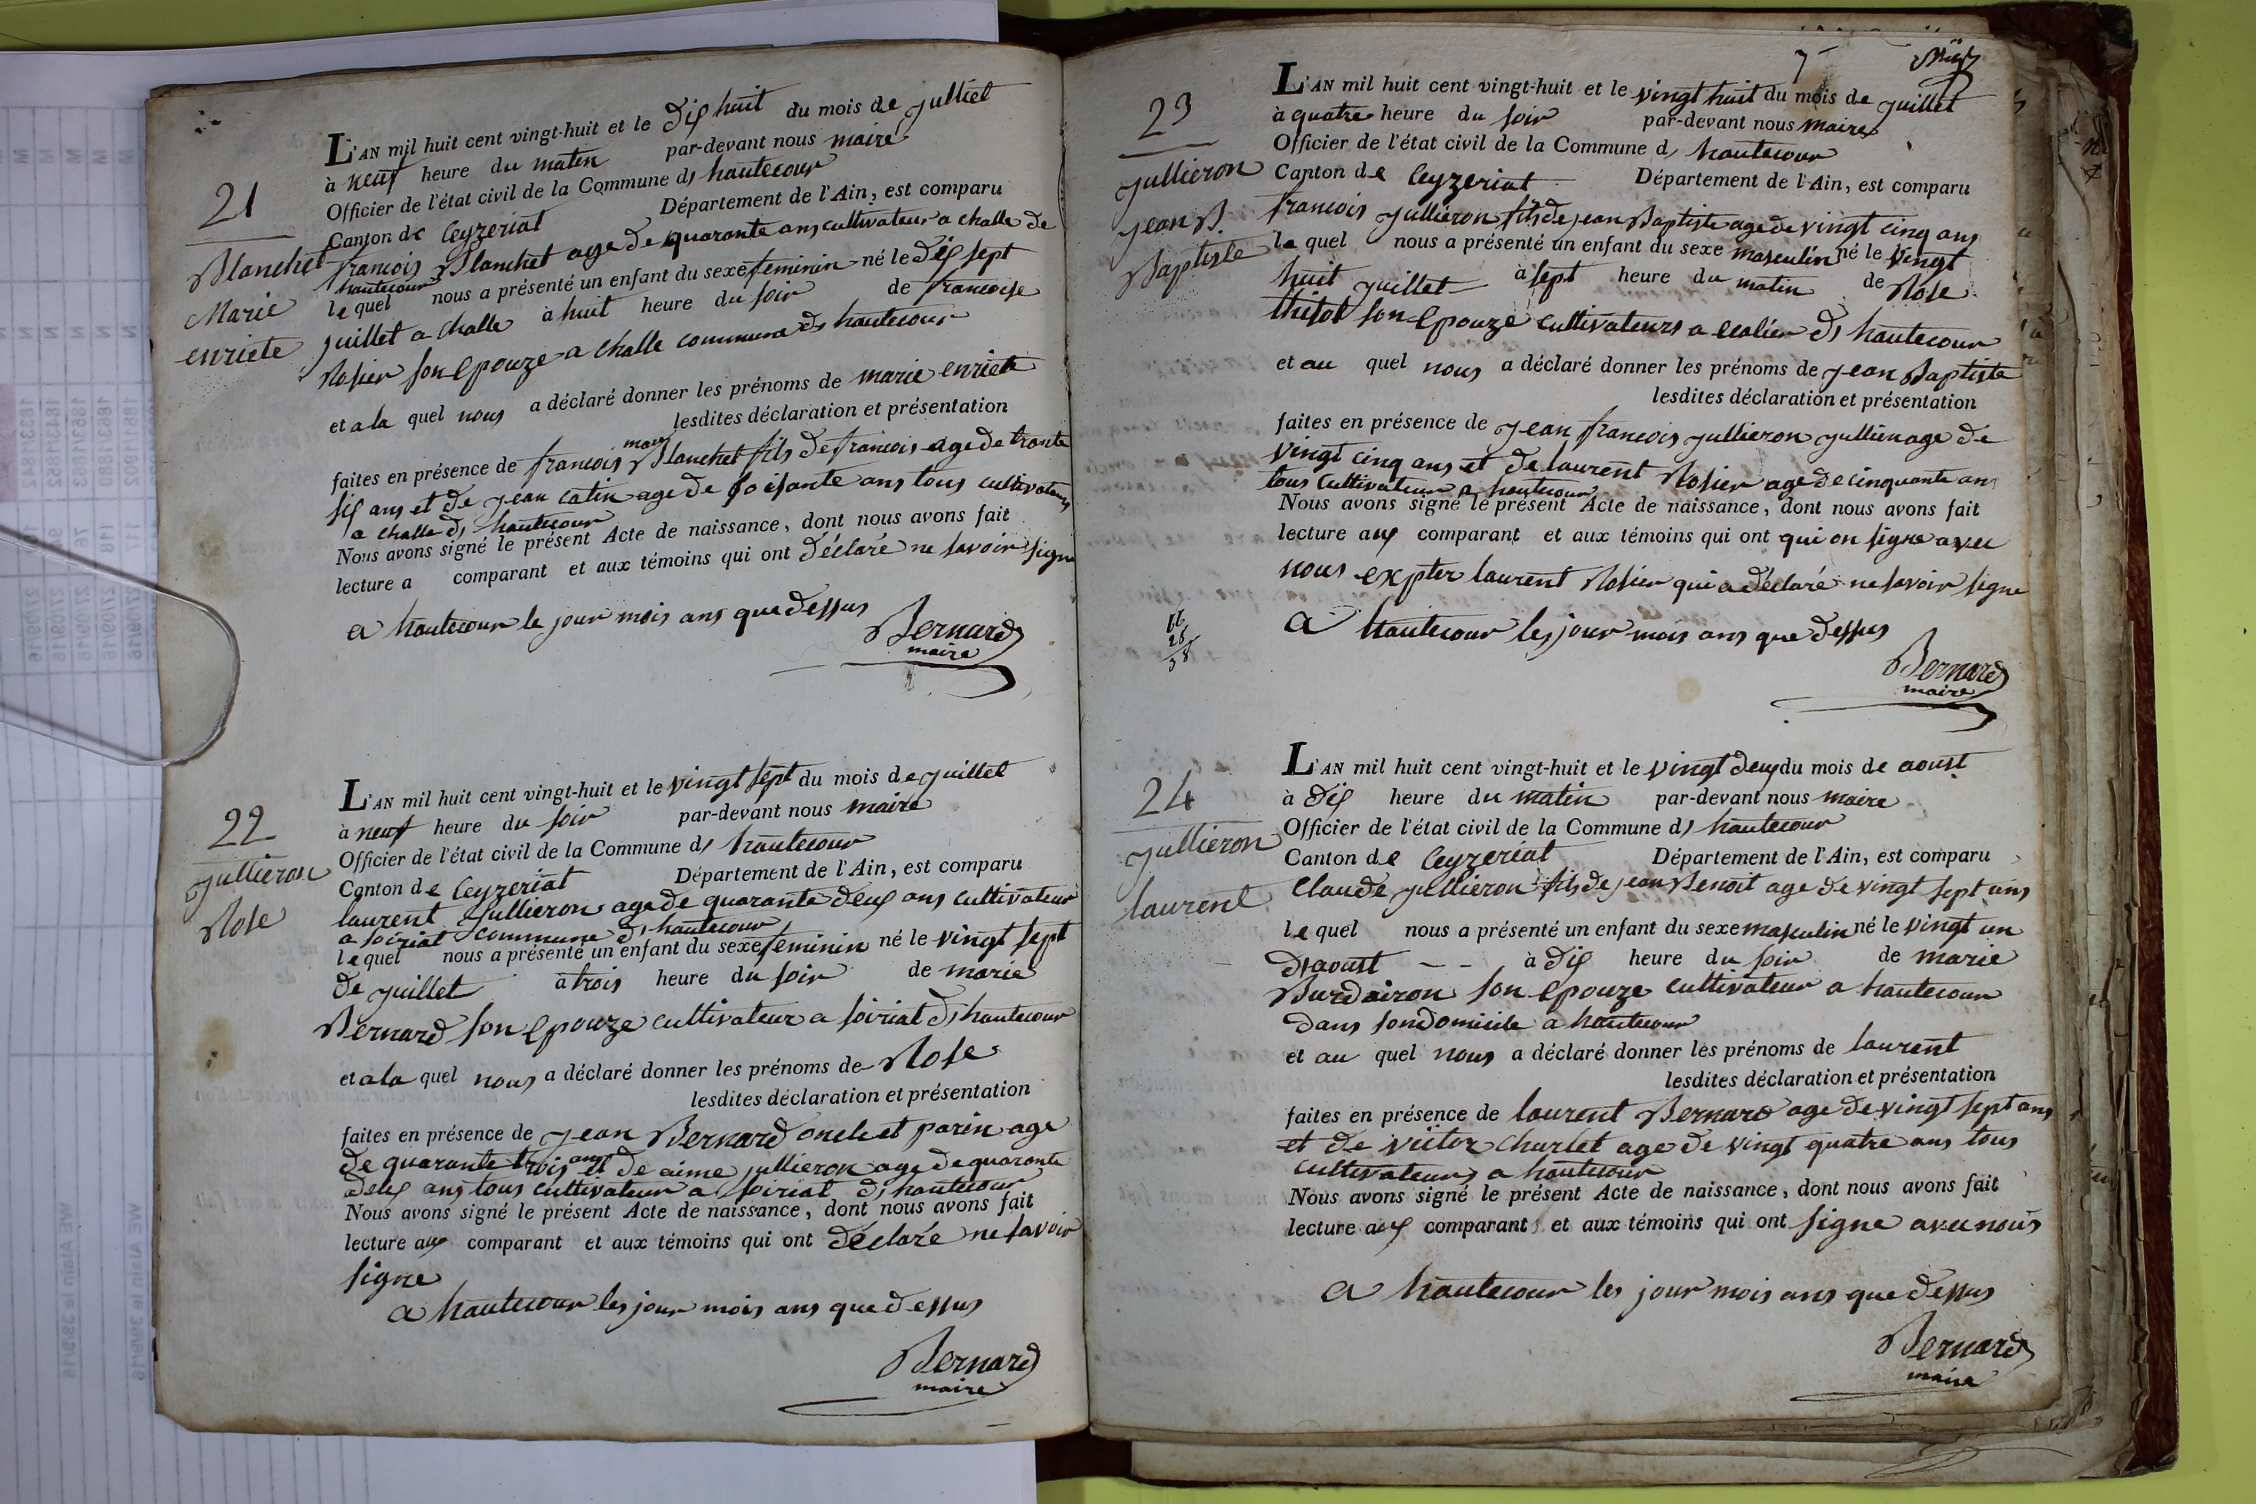 21
Blanchet
Marie
enriete
L'AN mil huit cent vingt-huit et le dix huit du mois de julliet
à neuf heure du matin par-devant nous maire
Officier de l'état civil de la Commune d, hautecour
Canton de Ceyzeriat Département de l'Ain, est comparu
francois Blanchet age de quarante ans cultivateur a challe de
hautecour
le quel nous a présenté un enfant du sexe feminin né le dix sept
juillet a challe à huit heure du soir de francoise
Rosier son epouze a challe commune d, hautecour
et a la quel nous a déclaré donner les prénoms de marie enriete
lesdites déclaration et présentation
faites en présence de francois marie Blanchet fils de francois age de trante
six ans et de jean catin age de soisante ans tous cultivateurs
a challe d, hautecour
Nous avons signé le présent Acte de naissance, dont nous avons fait
lecture a comparant et aux témoins qui ont déclaré ne savoir signe
a hautecour le jour mois ans que dessus
Bernard
maire
22
jullieron
Rose
L'AN mil huit cent vingt-huit et le vingt sept du mois de juillet
à neuf heure du soir par-devant nous maire
Officier de l'état civil de la Commune d, hautecour
Canton de Ceyzeriat Département de l'Ain, est comparu
laurent Jullieron age de quarante deux ans cultivateur
a soiriat commune d, hautecour
le quel nous a présenté un enfant du sexe feminin né le vingt sept
de juillet à trois heure du soir de marie
Bernard son epouze cultivateur a soiriat d, hautecour
et a la quel nous a déclaré donner les prénoms de Rose
lesdites déclaration et présentation
faites en présence de jean Bernard oncle et parin age
de quarante trois ans et de aime jullieron age de quarante
deux ans tous cultivateur a soiriat d, hautecour
Nous avons signé le présent Acte de naissance, dont nous avons fait
lecture aux comparant et aux témoins qui ont déclaré ne savoir
signe
a hautecour les jour mois ans que dessus
Bernard
maire
7
23
jullieron
jean B.
Baptiste
L'AN mil huit cent vingt-huit et le vingt huit du mois de juillet
à quatre heure du soir par-devant nous maire
Officier de l'état civil de la Commune d, hautecour
Canton de Ceyzeriat Département de l'Ain, est comparu
francois jullieron fils de jean Baptiste age de vingt cinq ans
le quel nous a présenté un enfant du sexe masculin né le vingt
huit juillet à sept heure du matin de Rose
son epouze cultivateurs a d, hautecour
et au quel nous a déclaré donner les prénoms de jean Baptiste
lesdites déclaration et présentation
faites en présence de jean francois jullieron jullien age de
vingt cinq ans et de laurent Rosier age de cinquante ans
tous cultivateur a hautecour
Nous avons signé le présent Acte de naissance, dont nous avons fait
lecture aux comparant et aux témoins qui ont qui on signe avec
nous expter laurent Rosier qui a déclaré ne savoir signe
a hautecour les jour mois ans que dessus
Bernard
maire
24
jullieron
laurent
L'AN mil huit cent vingt-huit et le vingt deux du mois de aoust
à dix heure du matin par-devant nous maire
Officier de l'état civil de la Commune d, hautecour
Canton de Ceyzeriat Département de l'Ain, est comparu
Claude jullieron fils de jean Benoit age de vingt sept ans
le quel nous a présenté un enfant du sexe masculin né le vingt un
d, aoust à dix heure du soir de marie
Burdairon son epouze cultivateur a hautecour
dans son domicile a hautecour
et au quel nous a déclaré donner les prénoms de laurent
lesdites déclaration et présentation
faites en présence de laurent Bernard age de vingt sept ans
et de victor charlet age de vingt quatre ans tous
cultivateurs a hautecour
Nous avons signé le présent Acte de naissance, dont nous avons fait
lecture aux comparants et aux témoins qui ont signe avec nous
a hautecour les jour mois ans que dessus
Bernard
maire